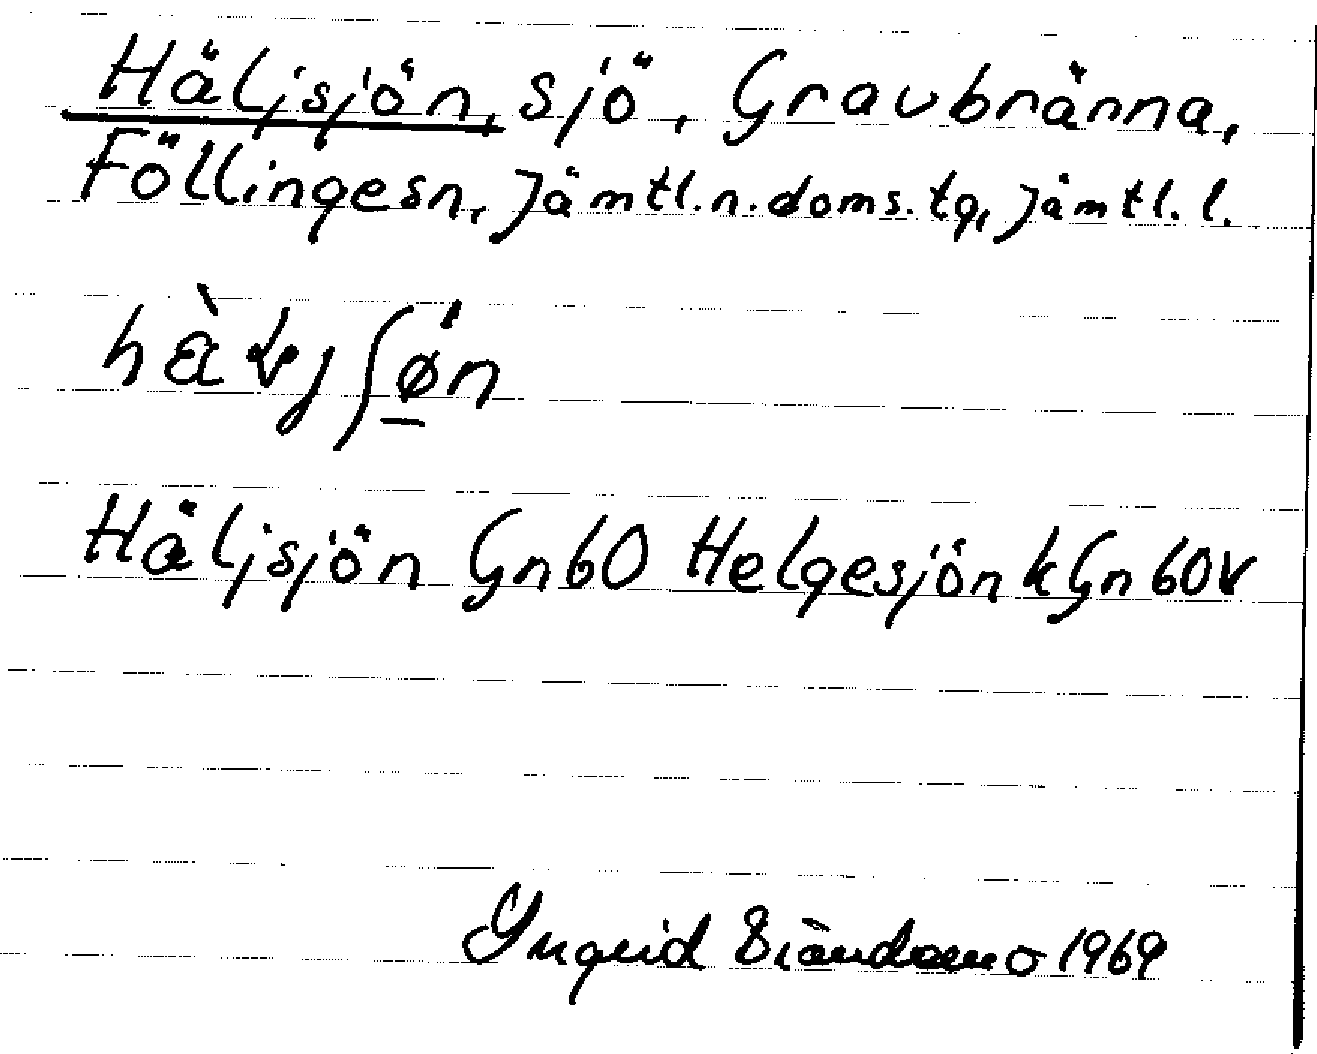 Häljsjön, sjö, Graubränna,
Föllingesn, Jämtl.n.doms.tg, Jämtl.l.
Häljsjön Gnb0 Helgesjön kGnb0v
Ingrid 1969